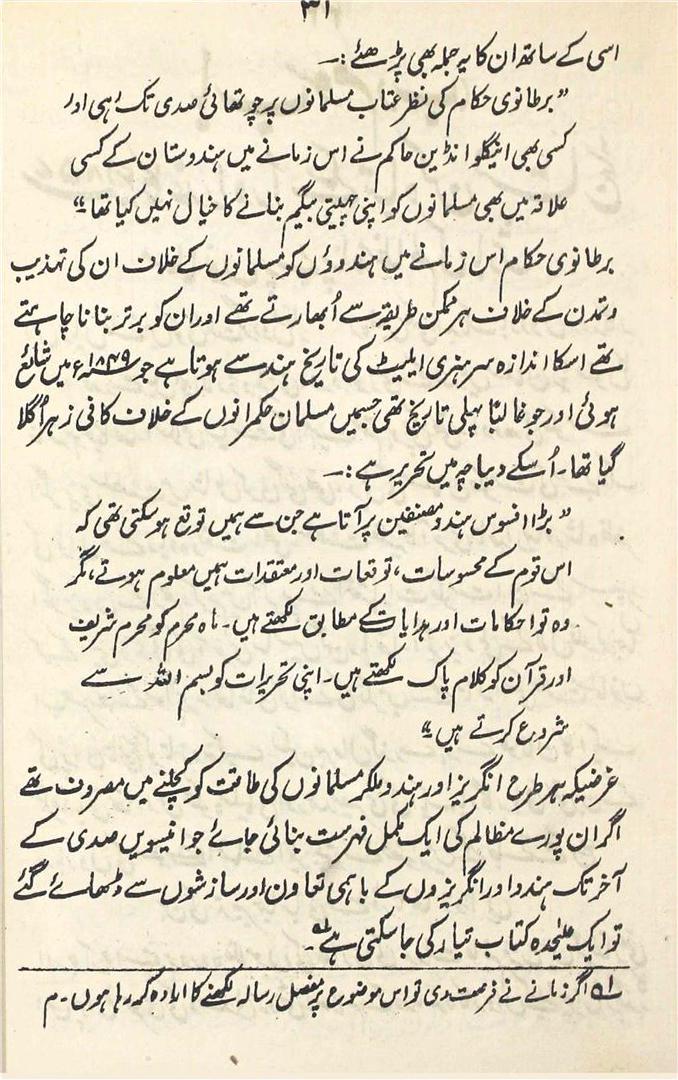 ۳۱
اسی کے ساتھ ان کا یہ جملہ بھی پڑھئے :۔
" برطانوی حکام کی نظر عتاب مسلمانوں پر چوتھائی صدی تک رہی اور
کسی بھی اینگلو انڈین حاکم نے اس زمانے میں ہندوستان کے کسی
علاقہ میں بھی مسلمانوں کو اپنی چہیتی بیگم بنانے کا خیال نہیں کیا تھا "
برطانوی حکام اس زمانے میں ہندوؤں کو مسلمانوں کے خلاف ان کی تہذیب
و تمدن کے خلاف ہر ممکن طریقہ سے اُبھارتے تھے اور ان کو برتر بنانا چاہتے
تھے اسکا اندازہ سر ہنری ایلیٹ کی تاریخ ہند سے ہوتا ہے جو ۱۸۴۹ء میں شائع
ہوئی اور جو غالباً پہلی تاریخ تھی جسمیں مسلمان حکمرانوں کے خلاف کافی زہر اُگلا
گیا تھا۔ اُسکے دیباچہ میں تحریر ہے :۔
" بڑا افسوس ہندو مصنفین پر آتا ہے جن سے ہمیں توقع ہوسکتی تھی کہ
اس قوم کے محسوسات ، توقعات اور معتقدات ہمیں معلوم ہوتے ، مگر
وہ تو احکامات اور ہدایات کے مطابق لکھتے ہیں۔ ماہ محرم کو محرم شریف
اور قرآن کو کلام پاک لکھتے ہیں۔ اپنی تحریرات کو بسم اللہ سے
شروع کرتے ہیں "
غرضیکہ ہر طرح انگریز اور ہندو ملکر مسلمانوں کی طاقت کو کچلنے میں مصروف تھے
اگر ان پورے مظالم کی ایک مکمل فہرست بنائی جائے جو انیسویں صدی کے
آخر تک ہندو اور انگریزوں کے باہمی تعاون اور سازشوں سے ڈھائے گئے
تو ایک علیٰحدہ کتاب تیار کی جاسکتی ہے ۱ے۔
۱ے اگر زمانے نے فرصت دی تو اس موضوع پر مفصل رسالہ لکھنے کا ارادہ کر رہا ہوں۔ م